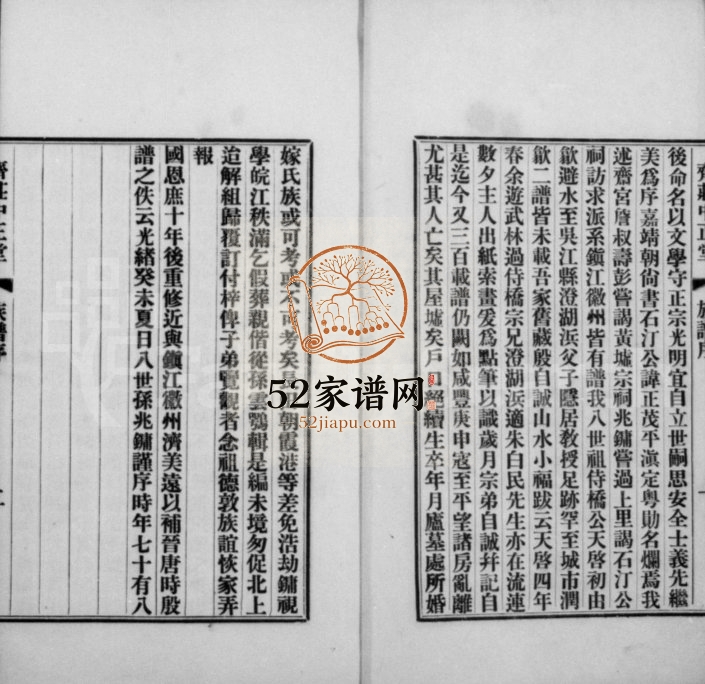 族譜序
後命名以文學守正宗光明宜自立世嗣思安全士義先繼
美為序嘉靖朝尙書石汀公諱正茂平滇定粵勛名爛焉我
述齋宮詹叔壽彭嘗謁黃墟宗祠兆鏞嘗過上里謁石汀公
祠訪求派系鎮江徽州皆有譜我八世祖侍橋公天啓初由
歙避水至吳江縣澄湖浜父子隱居教授足跡罕至城市潤
歙二譜皆未載吾家舊藏殷自誠山水小福跋云天啓四年
春余遊武林過侍橋宗兄澄湖浜適朱白民先生亦在流連
數夕主人出紙索畫爰為點筆以識歲月宗弟自誠幷記自
是迄今又三百載譜仍闕如咸豐庚申寇至平望諸房亂離
尤甚其人亡矣其屋墟矣戶口絕續生卒年月廬墓處所婚
嫁氏族或可考或不可考矣朝霞港等差免浩劫鏞視
學皖江秩滿乞假葬親偕從孫雲鶚輯是編未境匆促北上
迨解組歸覆訂付梓俾子弟覽觀者念祖德敦族誼恢家弄
報
國恩庶十年後重修近與鎮江徽州濟美遠以補晉唐時殷
譜之佚云光緒癸未夏日八世孫兆鏞謹序時年七十有八
齊莊中正堂
族譜序
52家谱网
52jiapu.com